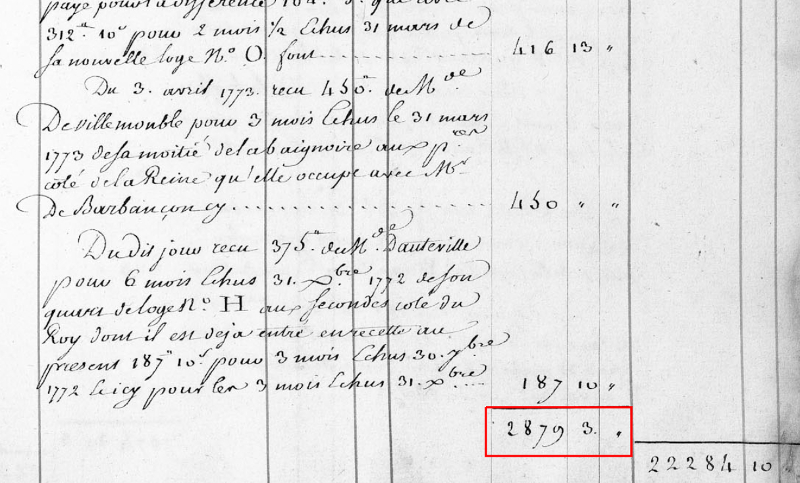 payé pour la différence 104.ᵗᵗ 3.ˢ que avec
312.ᵗᵗ 10ˢ pour 2 mois ½ Echus 31 mars de
sa nouvelle loge N.º O. font ........ 416 13 "
Du 3. avril 1773. recu 450.ᵗᵗ de M.ᵈᵉ
De villemomble pour 3 mois Echus le 31 mars
1773 de sa moitié de la baignoire aux p.ʳᵉˢ
coté de la Reine qu'elle occupe avec M.ʳ
De Barbançon cy ........ 450 " "
Du dit jour recu 375.ᵗᵗ de M.ᵈᵉ Dauteville
pour 6 mois Echus 31. xᵇʳᵉ 1772 de son
quart de loge N.º H aux secondes coté du
Roy dont il est deja entré en recette au
present 187ᵗᵗ 10ˢ pour 3 mois Echus 30. 7ᵇʳᵉ
1772 Et icy pour les 3 mois Echus 31. xᵇʳᵉ .... 187 10 "
2879 3. "
22284 10 "